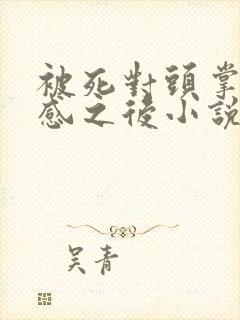 被死對頭掌
感之後小說
吴青